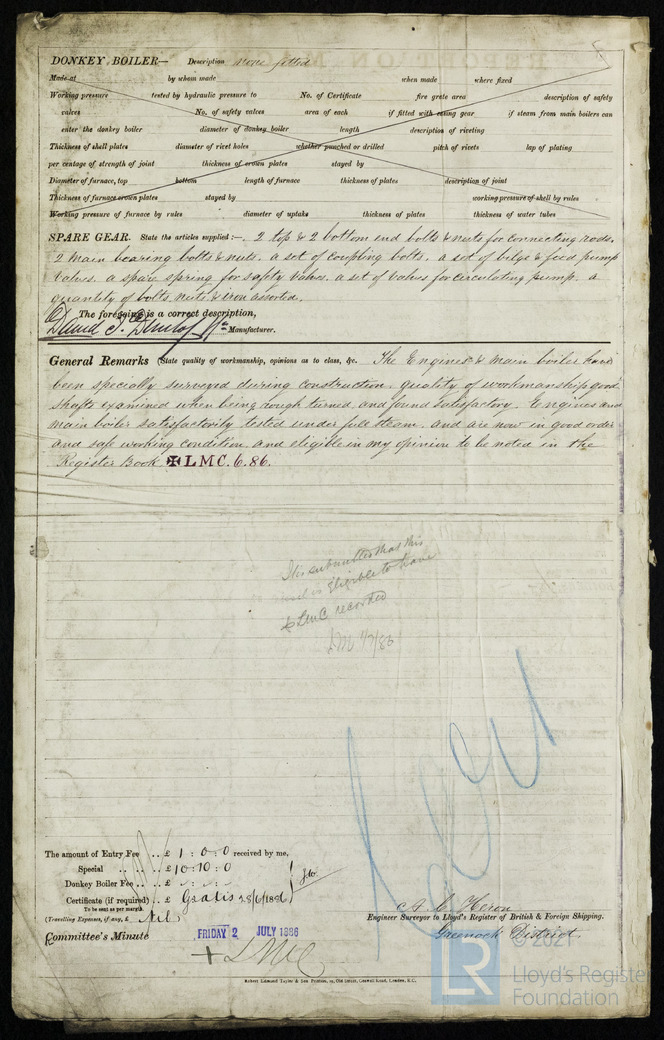 DONKEY BOILER— Description None fitted
Made at by whom made when made where fixed
Working pressure tested by hydraulic pressure to No. of Certificate fire grate area description of safety
valves No. of safety valves area of each if fitted with easing gear if steam from main boilers can
enter the donkey boiler diameter of donkey boiler length description of riveting
Thickness of shell plates diameter of rivet holes whether punched or drilled pitch of rivets lap of plating
per centage of strength of joint thickness of crown plates stayed by
Diameter of furnace, top bottom length of furnace thickness of plates description of joint
Thickness of furnace crown plates stayed by working pressure of shell by rules
Working pressure of furnace by rules diameter of uptake thickness of plates thickness of water tubes
SPARE GEAR. State the articles supplied:— 2 top & 2 bottom end bolts & nuts for connecting rods,
2 main bearing bolts & nuts. a set of coupling bolts, a set of bilge & feed pump
valves. a spare spring for safety valves. a set of valves for circulating pump. a
quantity of bolts, nuts & iron assorted.
The foregoing is a correct description,
David J. Dunlop & Co Manufacturer.
General Remarks (State quality of workmanship, opinions as to class, &c. The Engines & main boiler have
been specially surveyed during construction. quality of workmanship good.
shafts examined when being rough turned, and found satisfactory. Engines and
main boiler satisfactorily tested under full steam. and are now in good order
and safe working condition, and eligible in my opinion to be noted in the
Register Book ✠ LMC. 6. 86.
It is submitted that this
vessel is eligible to have
+ LMC recorded
2/7/86
The amount of Entry Fee .. £ 1 : 0 : 0 received by me,
Special .. .. £ 10 : 10 : 0
Donkey Boiler Fee .. .. £
Certificate (if required) .. £ Gratis 28/6/1886
To be sent as per margin.
(Travelling Expenses, if any, £ Nil)
A. C. Heron
Engineer Surveyor to Lloyd's Register of British & Foreign Shipping.
Greenock District.
Committee's Minute FRIDAY 2 JULY 1886
+ LMC
Robert Edmund Taylor & Son Printers, 19, Old Street, Goswell Road, London, E.C.
© 2021
LR Lloyd's Register
Foundation